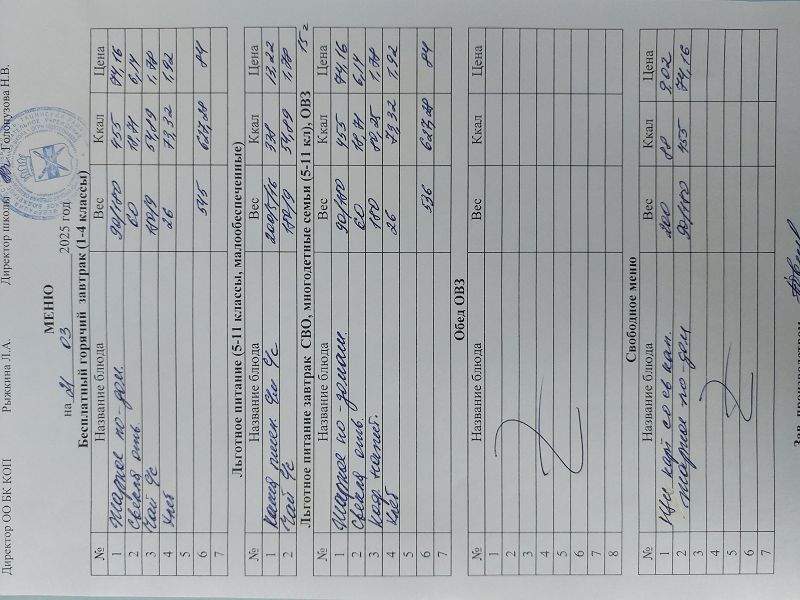 Директор ОО БК КОП Рыжкина Л.А. Директор школы Голопузова Н.В.
МЕНЮ
на 21 03 2025 год
Бесплатный горячий завтрак (1-4 классы)
№ Название блюда Вес Ккал Цена
1 Жаркое по-дом. 90/180 455 74,16
2 Свекла отв. 60 18,71 6,14
3 Чай 9с 150/9 54,89 1,78
4 Хлеб 26 73,32 1,92
5
6 545 84
7
Льготное питание (5-11 классы, малообеспеченные)
№ Название блюда Вес Ккал Цена
1 Каша пшен. 338 13,22
2 Чай 9с 150/9 54,89 1,78
15=
Льготное питание завтрак СВО, многодетные семьи (5-11 кл), ОВЗ
№ Название блюда Вес Ккал Цена
1 Жаркое по-домаш. 90/180 455 74,16
2 Свекла отв. 60 18,71 6,14
3 Коф. напит. 180 1,78
4 Хлеб 26 73,32 1,92
5
6 536 84
7
Обед ОВЗ
№ Название блюда Вес Ккал Цена
1
2
3
4
5
6
7
8
Свободное меню
№ Название блюда Вес Ккал Цена
1 Щи карт со св кап. 200 88 9,02
2 Жаркое по-дом 90/180 455 74,16
3
4
5
6
7